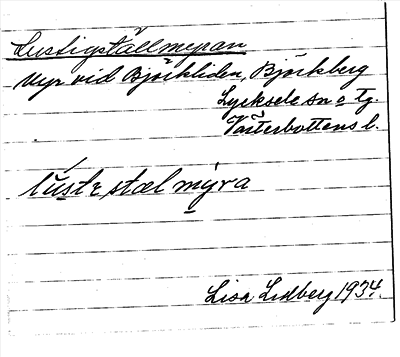 Lustigställmyran
Myr vid Björkliden, Björkberg
Lycksele sn o tg.
Västerbottens l.
lústɩ stæl mỳra
Lisa Lidberg 1934.